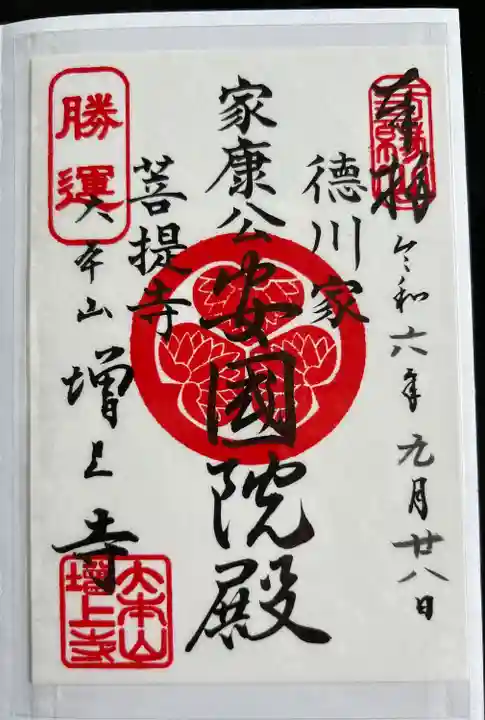 奉拝
令和六年九月廿八日
徳川家
家康公
安國院殿
菩提寺
勝運
大本山
増上寺
大本山
増上寺